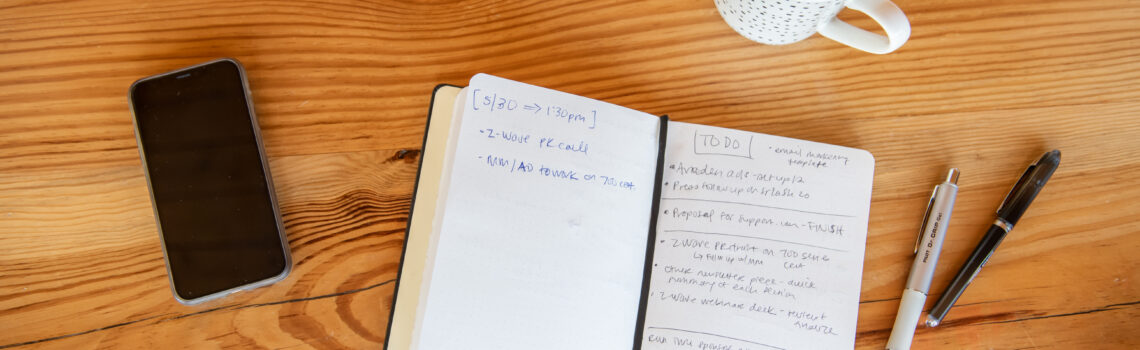 [5/30 => 1:30pm]
- Z-Wave PR call
- MM/AD to work on 700 cert
TODO
• email marketing
template
• ads - set up 1/2
• Press follow up on Splash 20
• Proposal for support. - FINISH
• Z-Wave on 700 series
↳ Follow up w/ MM cert
• newsletter piece - quick
summary of each session
• Z-Wave webinar deck - review +
analyze
PILOT Dr. GRIP